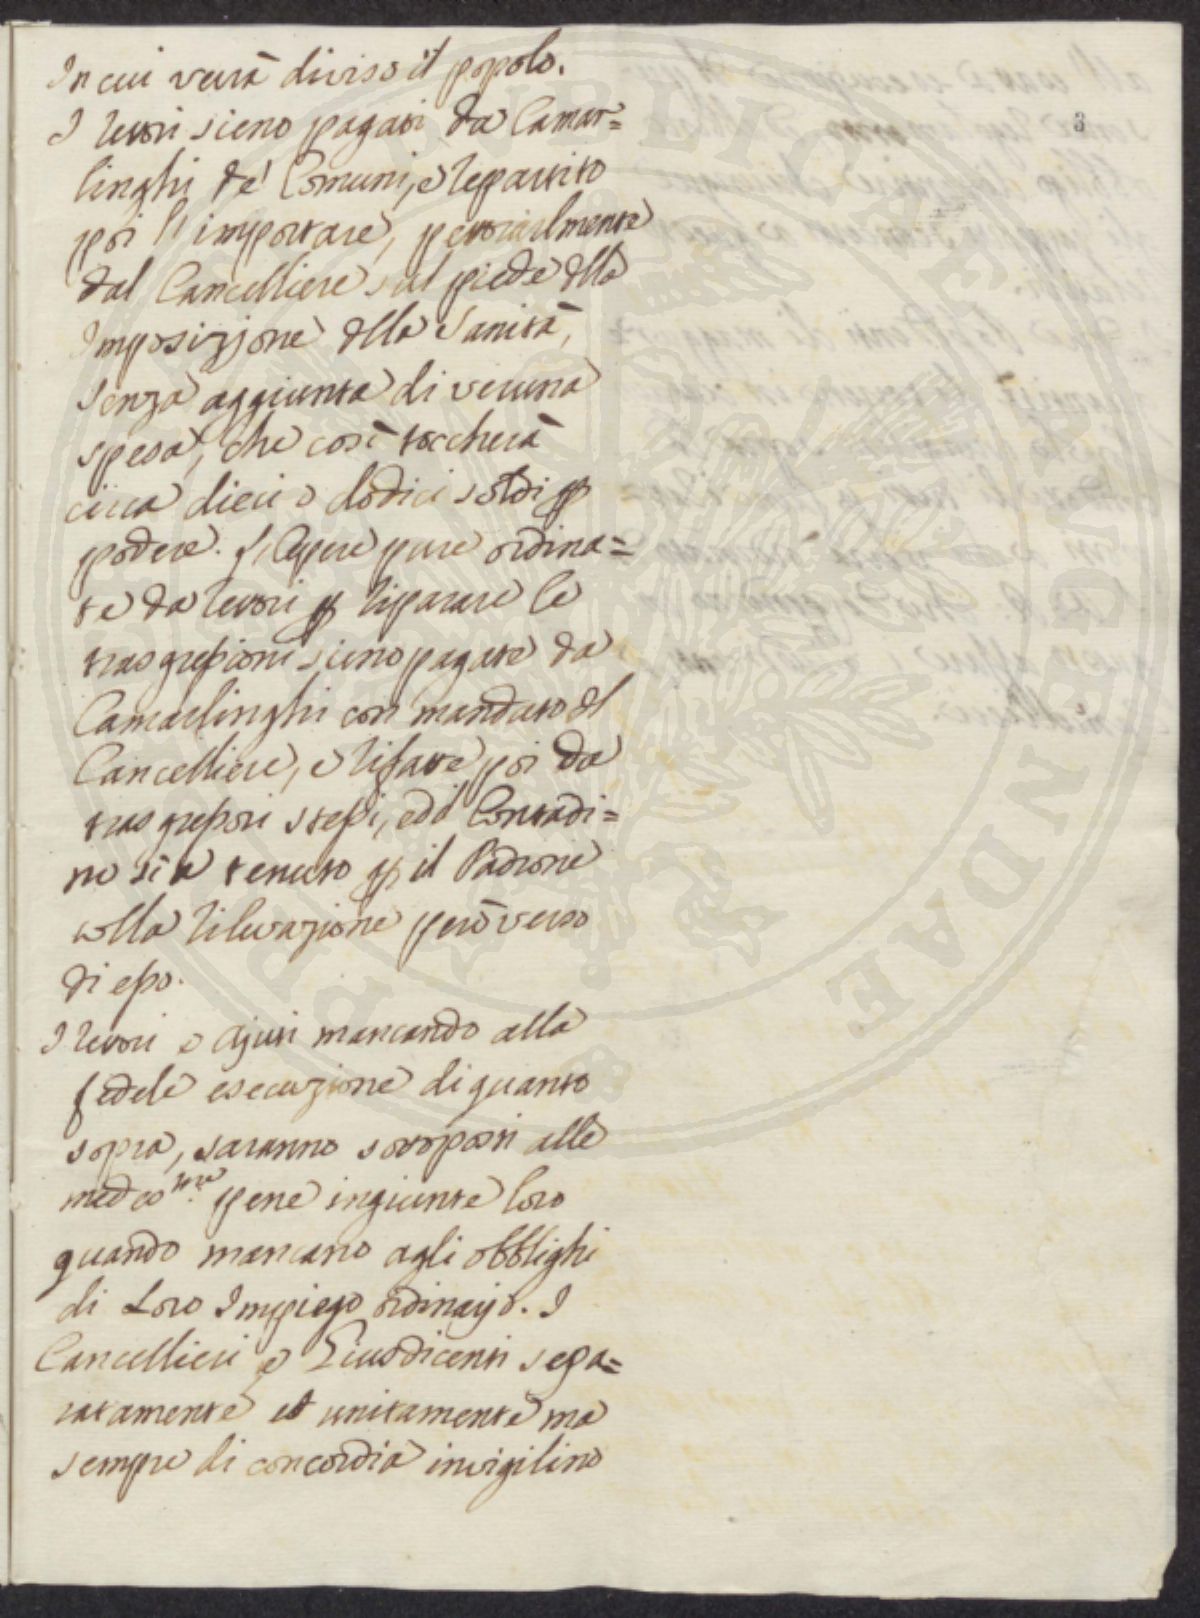 In cui verrà diviso il popolo.
I Rettori sieno pagati da Camar=
linghi de' Comuni, e repartito
poi l'importare,
dal Cancelliere sul piede della
Imposizione della Sanità,
senza aggiunta di veruna
spesa, che così toccherà
circa dieci o dodici soldi per
podere. Le opere pure ordina=
te da rettori per riparare le
trasgressioni sieno pagate da
Camarlinghi con mandato del
Cancelliere, e rifatte poi da
trasgressori stessi, ed il Contadi=
no sia tenuto per il Padrone
colla rilevazione però verso
di esso.
I rettori e Ajuti mancando alla
fedele esecuzione di quanto
sopra, saranno sottoposti alle
medes.me pene ingiunte loro
quando mancano agli obblighi
di Loro Impiego ordinario. I
Cancellieri e Giusdicenti sepa=
ratamente et unitamente ma
sempre di concordia invigilino
3